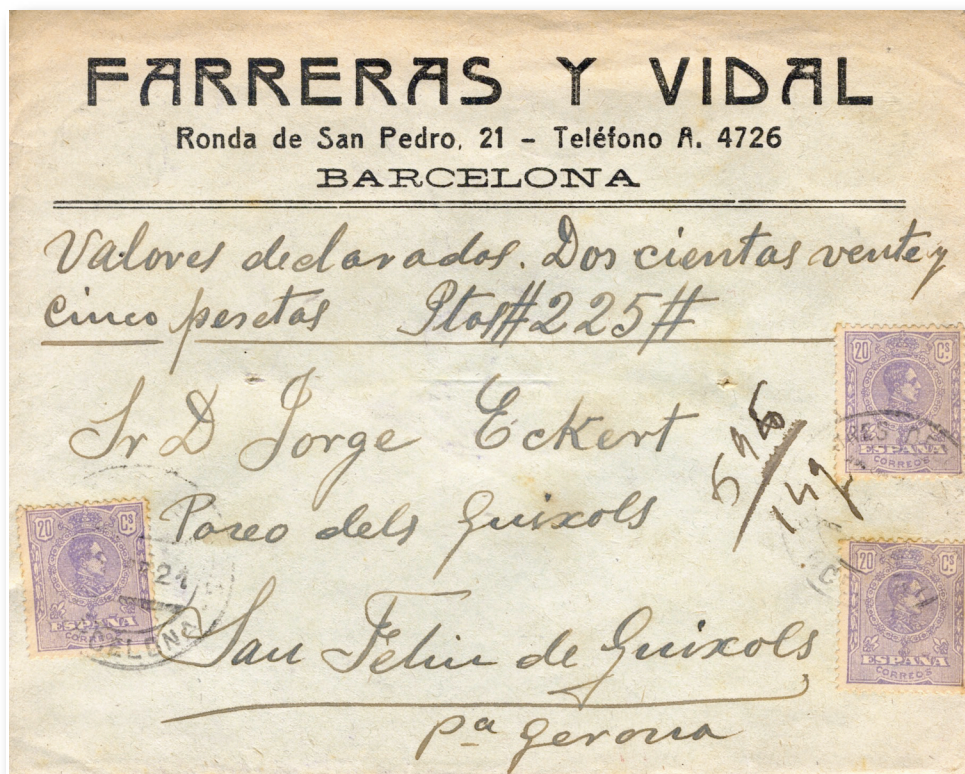 FARRERAS Y VIDAL
Ronda de San Pedro, 21 - Teléfono A. 4726
BARCELONA
Valores declarados. Dos cientas vente y
cinco pesetas Ptas # 225 #
Sr D Jorge Eckert
Paseo dels Guixols
San Feliu de Guixols
pª Gerona
20 Cs
ESPAÑA
CORREOS
20 Cs
ESPAÑA
CORREOS
20 Cs
ESPAÑA
CORREOS
21
CELONA
149